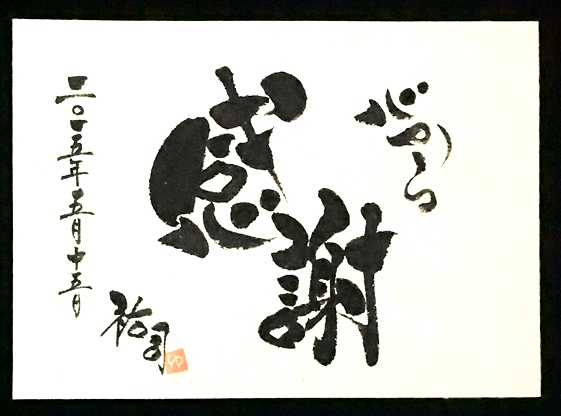 心から
感謝
二〇一五年五月十五日
祐司